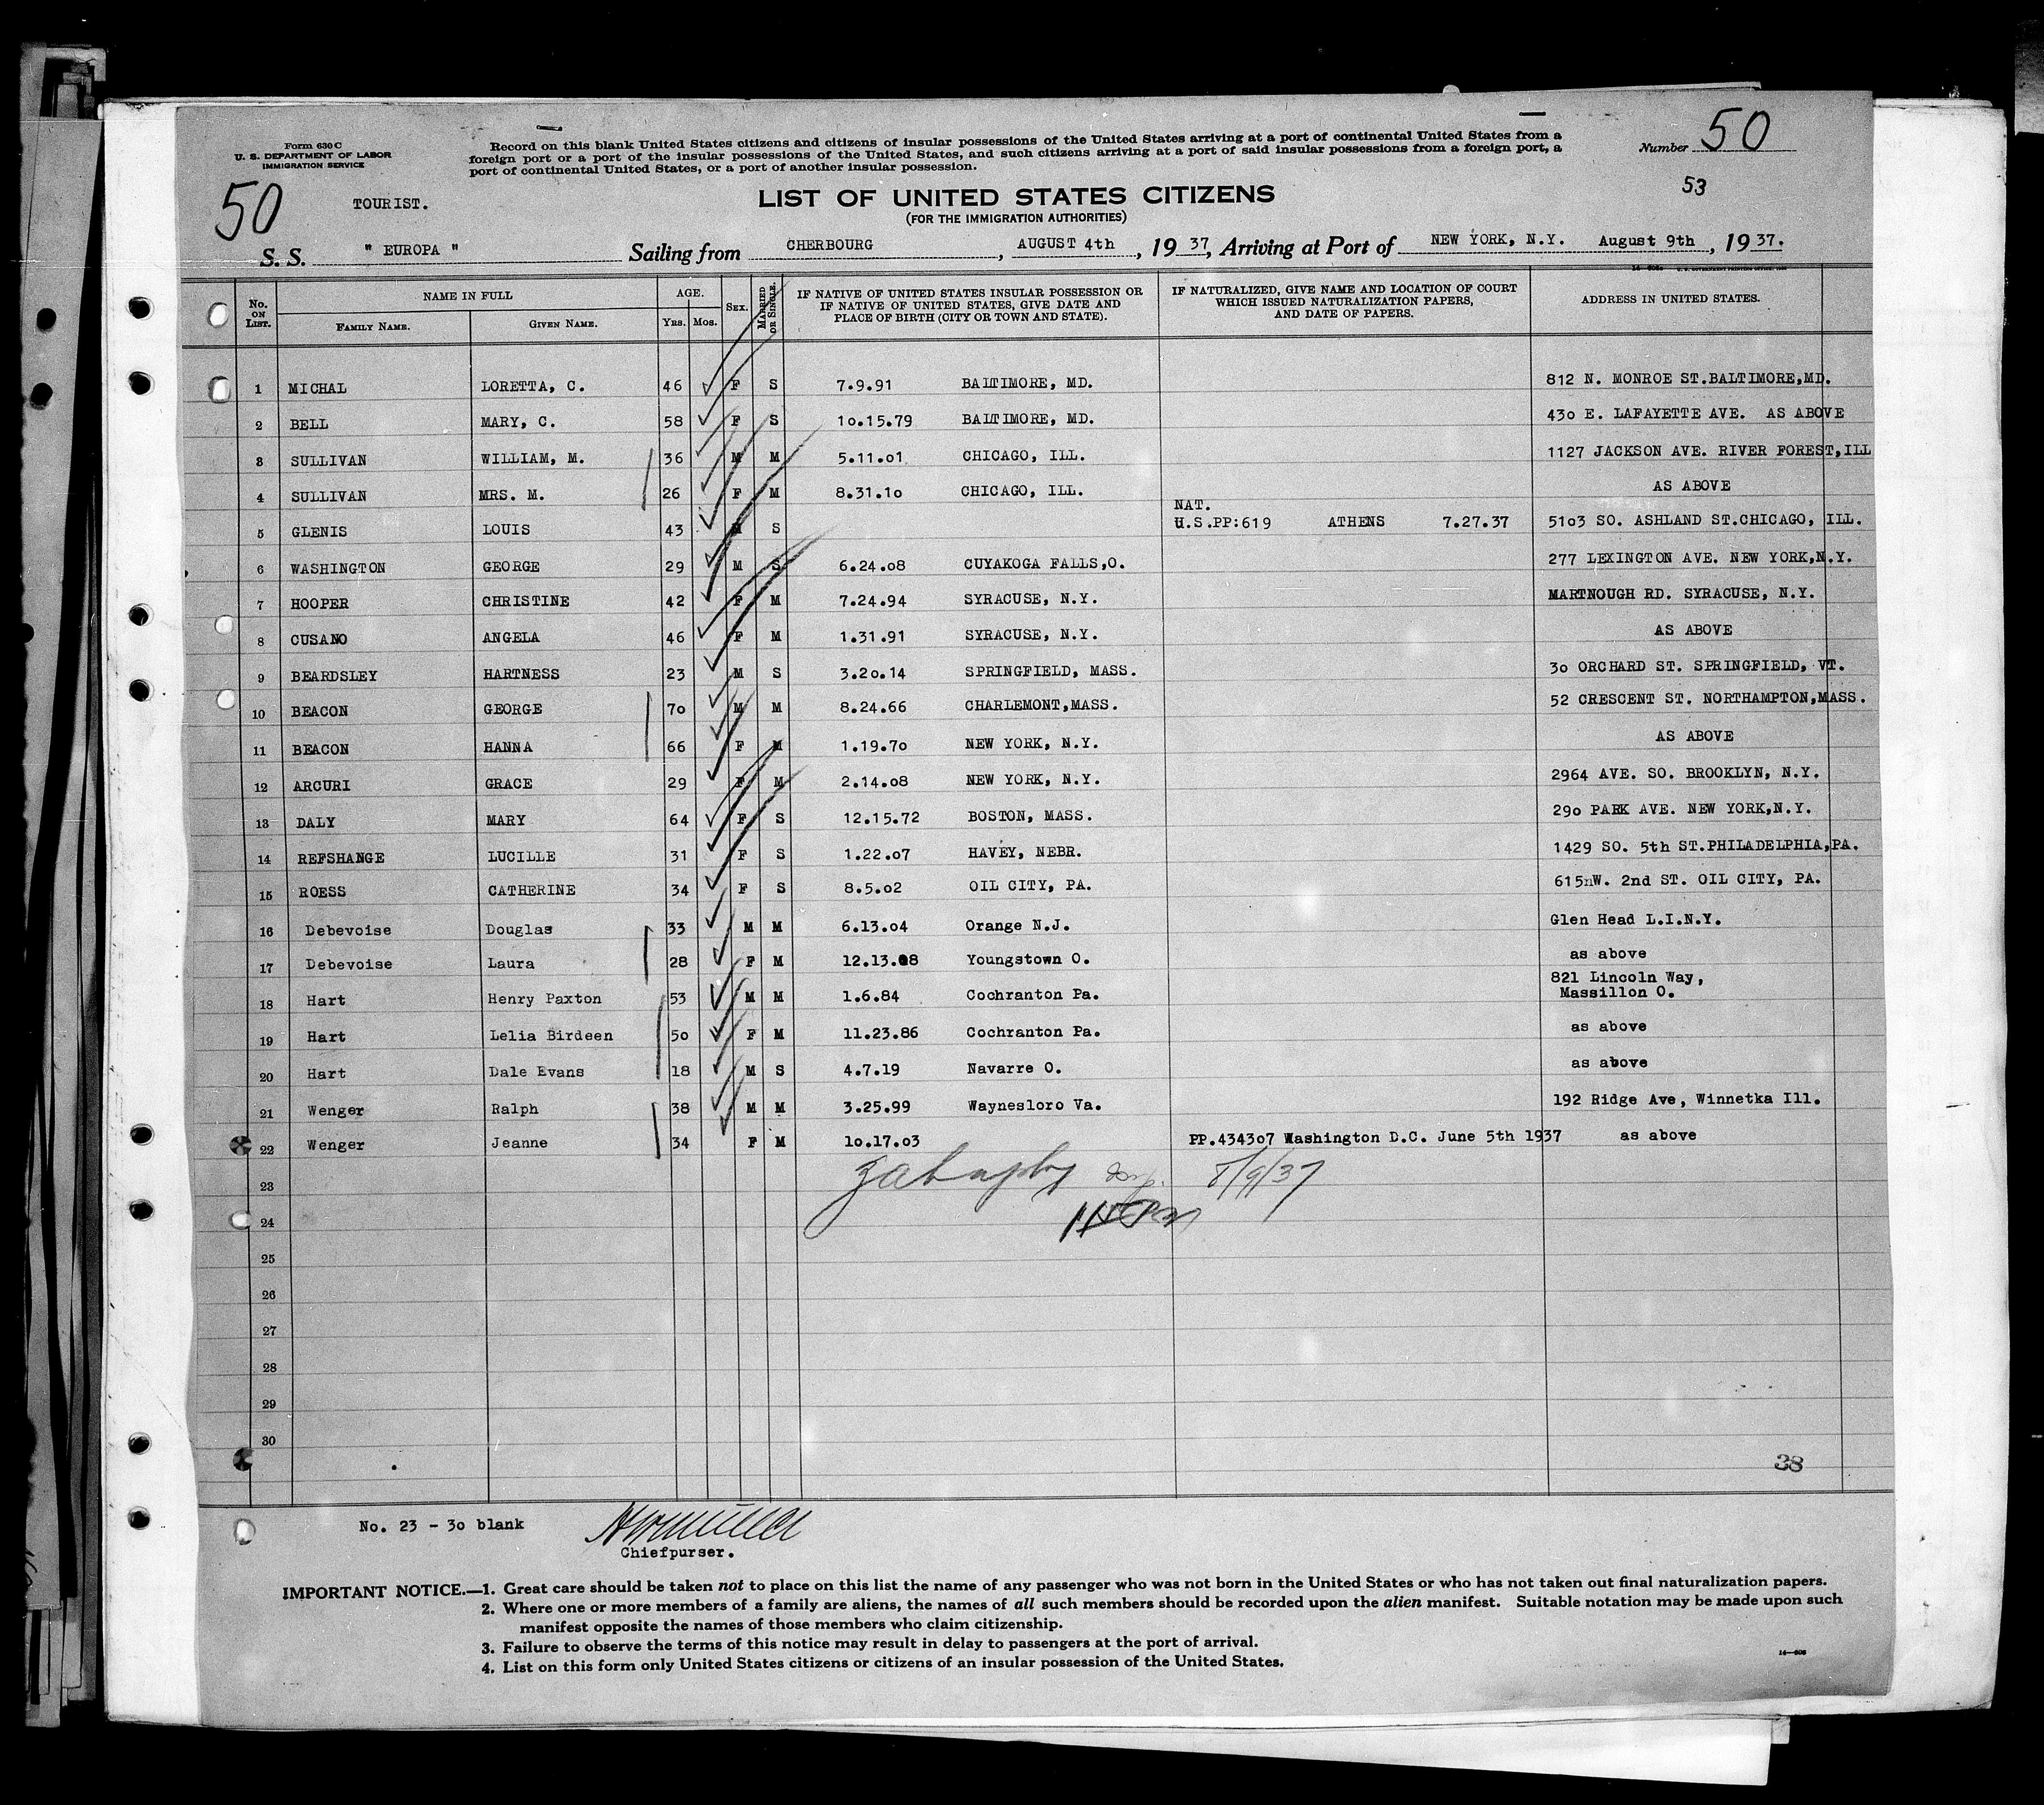 Form 630 C
U. S. DEPARTMENT OF LABOR
IMMIGRATION SERVICE
Record on this blank United States citizens and citizens of insular possessions of the United States arriving at a port of continental United States from a
foreign port or a port of the insular possessions of the United States, and such citizens arriving at a port of said insular possessions from a foreign port, a
port of continental United States, or a port of another insular possession.
Number 50
53
50
TOURIST.
LIST OF UNITED STATES CITIZENS
(FOR THE IMMIGRATION AUTHORITIES)
S. S. " EUROPA " Sailing from CHERBOURG, AUGUST 4th, 1937, Arriving at Port of NEW YORK, N.Y. August 9th, 1937.
No. ON LIST. NAME IN FULL FAMILY NAME. GIVEN NAME. AGE. Yrs. Mos. SEX. MARRIED OR SINGLE. IF NATIVE OF UNITED STATES INSULAR POSSESSION OR IF NATIVE OF UNITED STATES, GIVE DATE AND PLACE OF BIRTH (CITY OR TOWN AND STATE). IF NATURALIZED, GIVE NAME AND LOCATION OF COURT WHICH ISSUED NATURALIZATION PAPERS, AND DATE OF PAPERS. ADDRESS IN UNITED STATES.
1 MICHAL LORETTA, C. 46 F S 7.9.91 BALTIMORE, MD. 812 N. MONROE ST.BALTIMORE,MD.
2 BELL MARY, C. 58 F S 10.15.79 BALTIMORE, MD. 430 E. LAFAYETTE AVE. AS ABOVE
3 SULLIVAN WILLIAM, M. 36 M M 5.11.01 CHICAGO, ILL. 1127 JACKSON AVE. RIVER FOREST,ILL
4 SULLIVAN MRS. M. 26 F M 8.31.10 CHICAGO, ILL. AS ABOVE
NAT.
5 GLENIS LOUIS 43 M S U.S.PP:619 ATHENS 7.27.37 5103 SO. ASHLAND ST.CHICAGO, ILL.
6 WASHINGTON GEORGE 29 M S 6.24.08 CUYAKOGA FALLS,O. 277 LEXINGTON AVE. NEW YORK,N.Y.
7 HOOPER CHRISTINE 42 F M 7.24.94 SYRACUSE, N.Y. MARTNOUGH RD. SYRACUSE, N.Y.
8 CUSANO ANGELA 46 F M 1.31.91 SYRACUSE, N.Y. AS ABOVE
9 BEARDSLEY HARTNESS 23 M S 3.20.14 SPRINGFIELD, MASS. 30 ORCHARD ST. SPRINGFIELD, VT.
10 BEACON GEORGE 70 M M 8.24.66 CHARLEMONT,MASS. 52 CRESCENT ST. NORTHAMPTON,MASS.
11 BEACON HANNA 66 F M 1.19.70 NEW YORK, N.Y. AS ABOVE
12 ARCURI GRACE 29 F M 2.14.08 NEW YORK, N.Y. 2964 AVE. SO. BROOKLYN, N.Y.
13 DALY MARY 64 F S 12.15.72 BOSTON, MASS. 290 PARK AVE. NEW YORK,N.Y.
14 REFSHANGE LUCILLE 31 F S 1.22.07 HAVEY, NEBR. 1429 SO. 5th ST.PHILADELPHIA,PA.
15 ROESS CATHERINE 34 F S 8.5.02 OIL CITY, PA. 615nW. 2nd ST. OIL CITY, PA.
16 Debevoise Douglas 33 M M 6.13.04 Orange N.J. Glen Head L.I.N.Y.
17 Debevoise Laura 28 F M 12.13.08 Youngstown O. as above
18 Hart Henry Paxton 53 M M 1.6.84 Cochranton Pa. 821 Lincoln Way,
Massillon O.
19 Hart Lelia Birdeen 50 F M 11.23.86 Cochranton Pa. as above
20 Hart Dale Evans 18 M S 4.7.19 Navarre O. as above
21 Wenger Ralph 38 M M 3.25.99 Waynesloro Va. 192 Ridge Ave, Winnetka Ill.
22 Wenger Jeanne 34 F M 10.17.03 PP.434307 Washington D.C. June 5th 1937 as above
23 8/9/37
24
25
26
27
28
29
30
38
No. 23 - 30 blank
Chiefpurser.
IMPORTANT NOTICE.—1. Great care should be taken not to place on this list the name of any passenger who was not born in the United States or who has not taken out final naturalization papers.
2. Where one or more members of a family are aliens, the names of all such members should be recorded upon the alien manifest. Suitable notation may be made upon such
manifest opposite the names of those members who claim citizenship.
3. Failure to observe the terms of this notice may result in delay to passengers at the port of arrival.
4. List on this form only United States citizens or citizens of an insular possession of the United States.